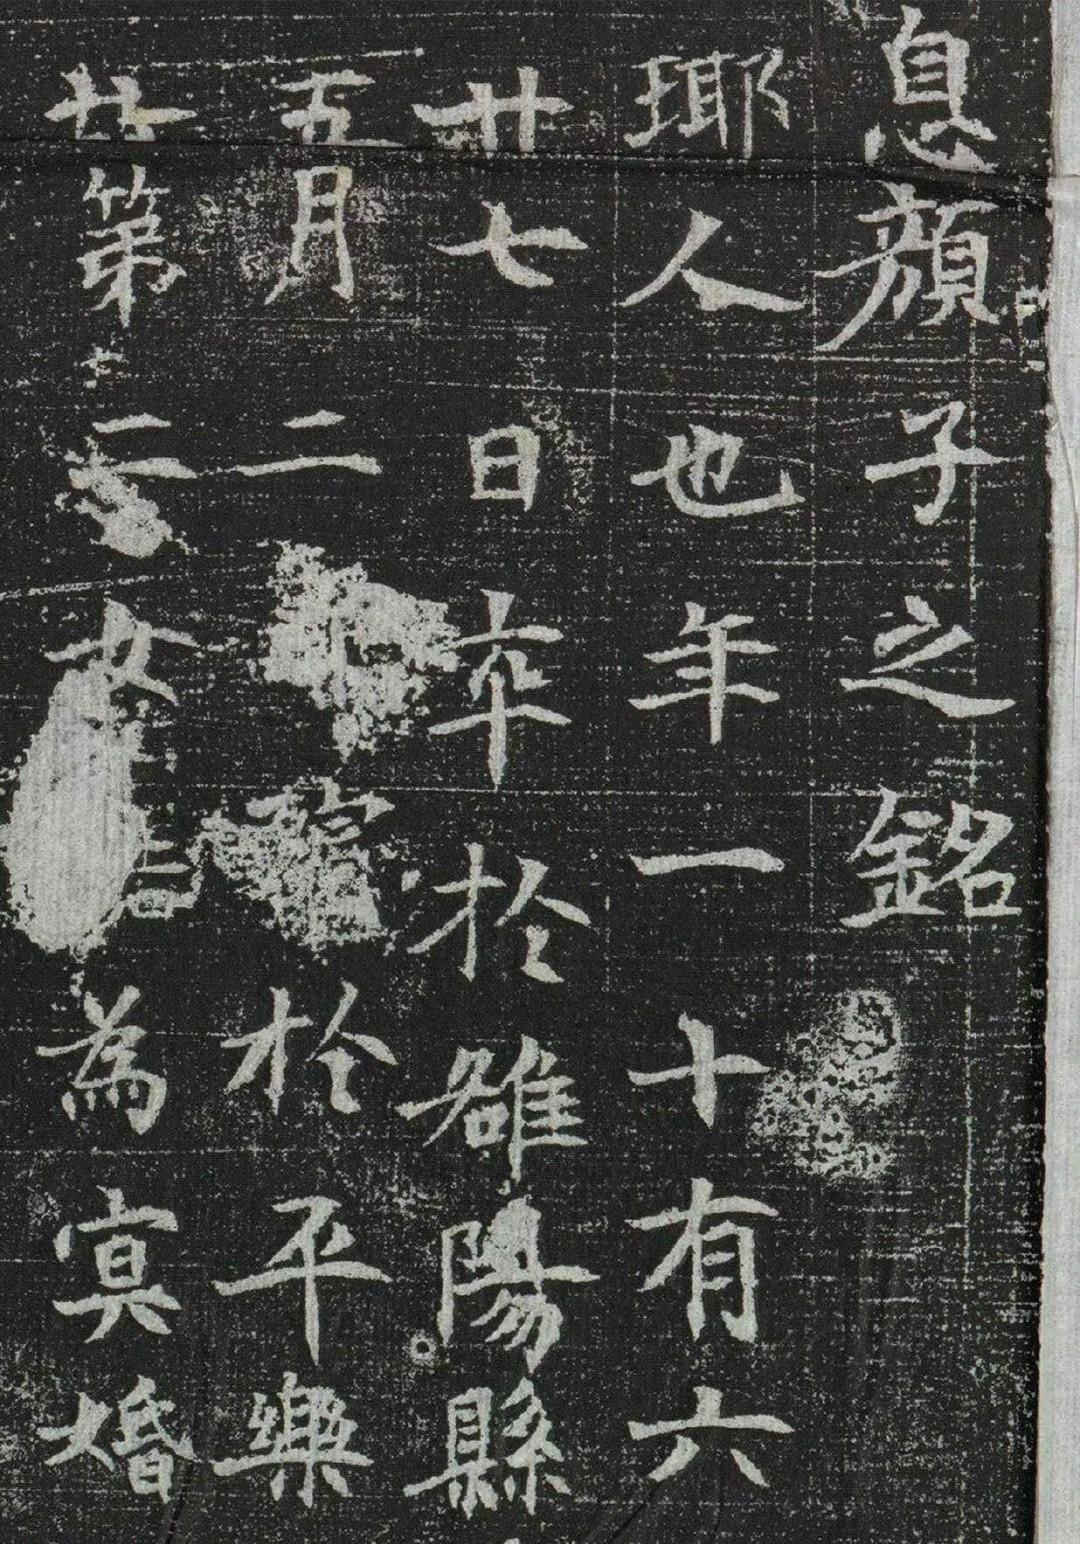 息顏子之銘
瑯人也年一十有六
廿七日卒於雒陽縣
五月二於平樂
第二女結為冥婚